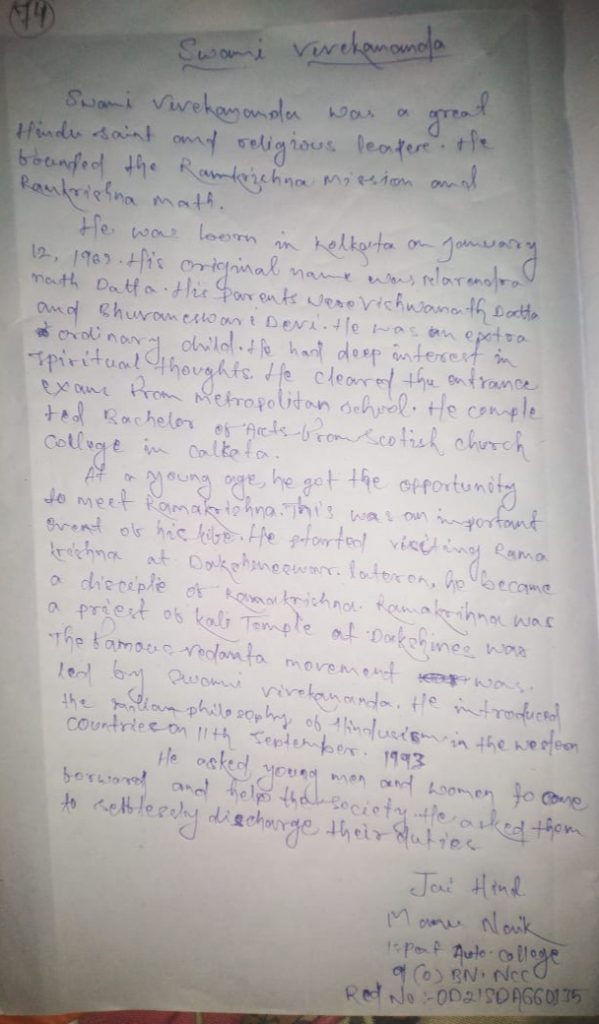 74
Swami Vivekananda
Swami Vivekananda was a great
Hindu saint and religious leadere. He
bounded the Ramkrishna Mission and
Ramkrishna math.
He was born in Kolkata on January
12, 1963. His original name was Narendra
nath Datta. His parents were Vishwanath Datta
and Bhuvaneswari Devi. He was an extra
ordinary child. He had deep interest in
spiritual thoughts. He cleared the entrance
exam from metropolitan school. He comple
ted Bachelor of Arts from Scotish church
College in Calkata.
At a young age, he got the opportunity
to meet Ramakrishna. This was an important
event of his life. He started visiting Rama
krishna at Dakshineswar. later on, he became
a disciple of Ramakrishna. Ramakrihna was
a priest of kali Temple at Dakshines war
The famous vedanta movement was.
led by Swami vivekananda. He introduced
the indian philosophy of Hinduism in the western
countries on 11th September. 1993
He asked young men and women to come
forward and help the society. He asked them
to selflessly discharge their duties
Jai Hind
Manu Naik
Ispat Auto. college
9 (O) BN. NCC
Red No :- OD21SDA660135